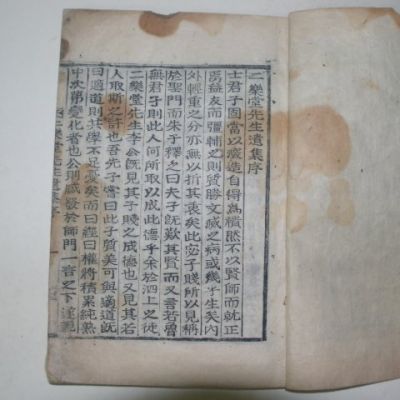 二樂堂先生遺集序
士君子固當以深造自得爲積然不以賢師而就正
焉益友而彊輔之則質勝文滅之病或幾乎生矣內
外輕重之分亦無以折其衷矣此宓子賤所以見稱
於聖門而朱子釋之曰夫子旣歎其賢而又言若魯
無君子則此人何所取以成此德乎余於泗上之徒
二樂堂先生李公旣見其子賤之成德也又見其若
人取斯之訏也吾先子嘗曰此子質美可與適道旣
曰適道則其學不足憂矣而曰經曰權將積累純熟
中次第變化者也公則感發於師門一言之下遂視
二樂堂先生遺集序